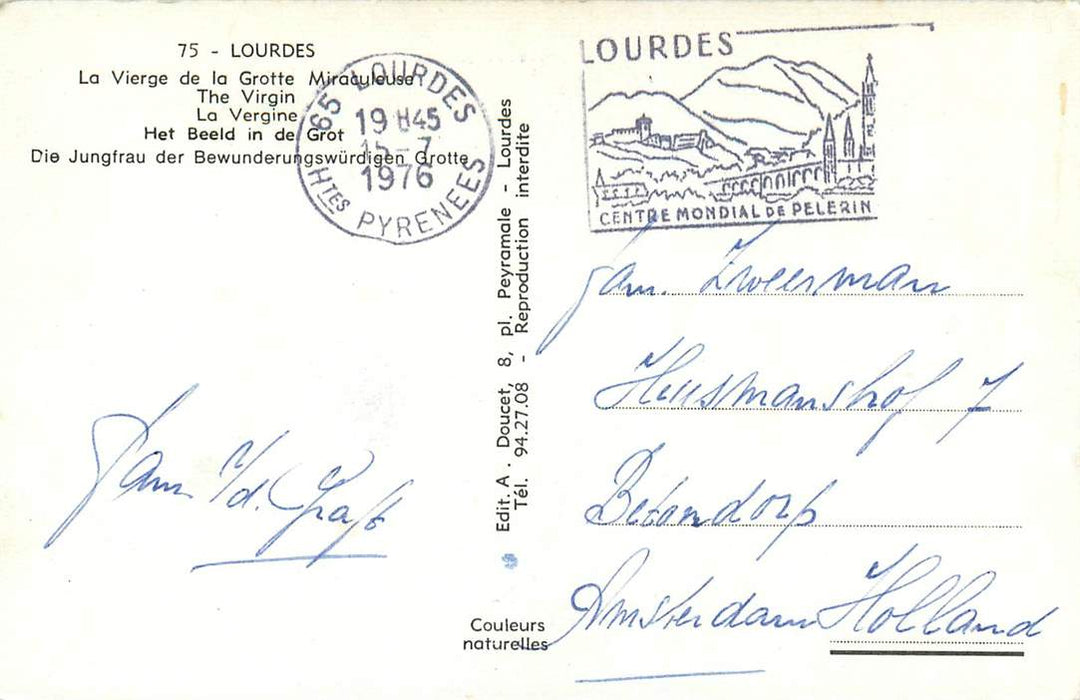 75 - LOURDES
La Vierge de la Grotte Miraculeuse
The Virgin
La Vergine
Het Beeld in de Grot
Die Jungfrau der Bewunderungswürdigen Grotte
65 LOURDES
19H45
15-7
1976
HTES PYRENEES
LOURDES
CENTRE MONDIAL DE PELERIN
Edit. A. Doucet, 8, pl. Peyramale - Lourdes
Tél. 94.27.08 - Reproduction interdite
Fam. Zweerman
Huismanshof 7
Betondorp
Amsterdam Holland
Fam v/d. Graft
Couleurs
naturelles